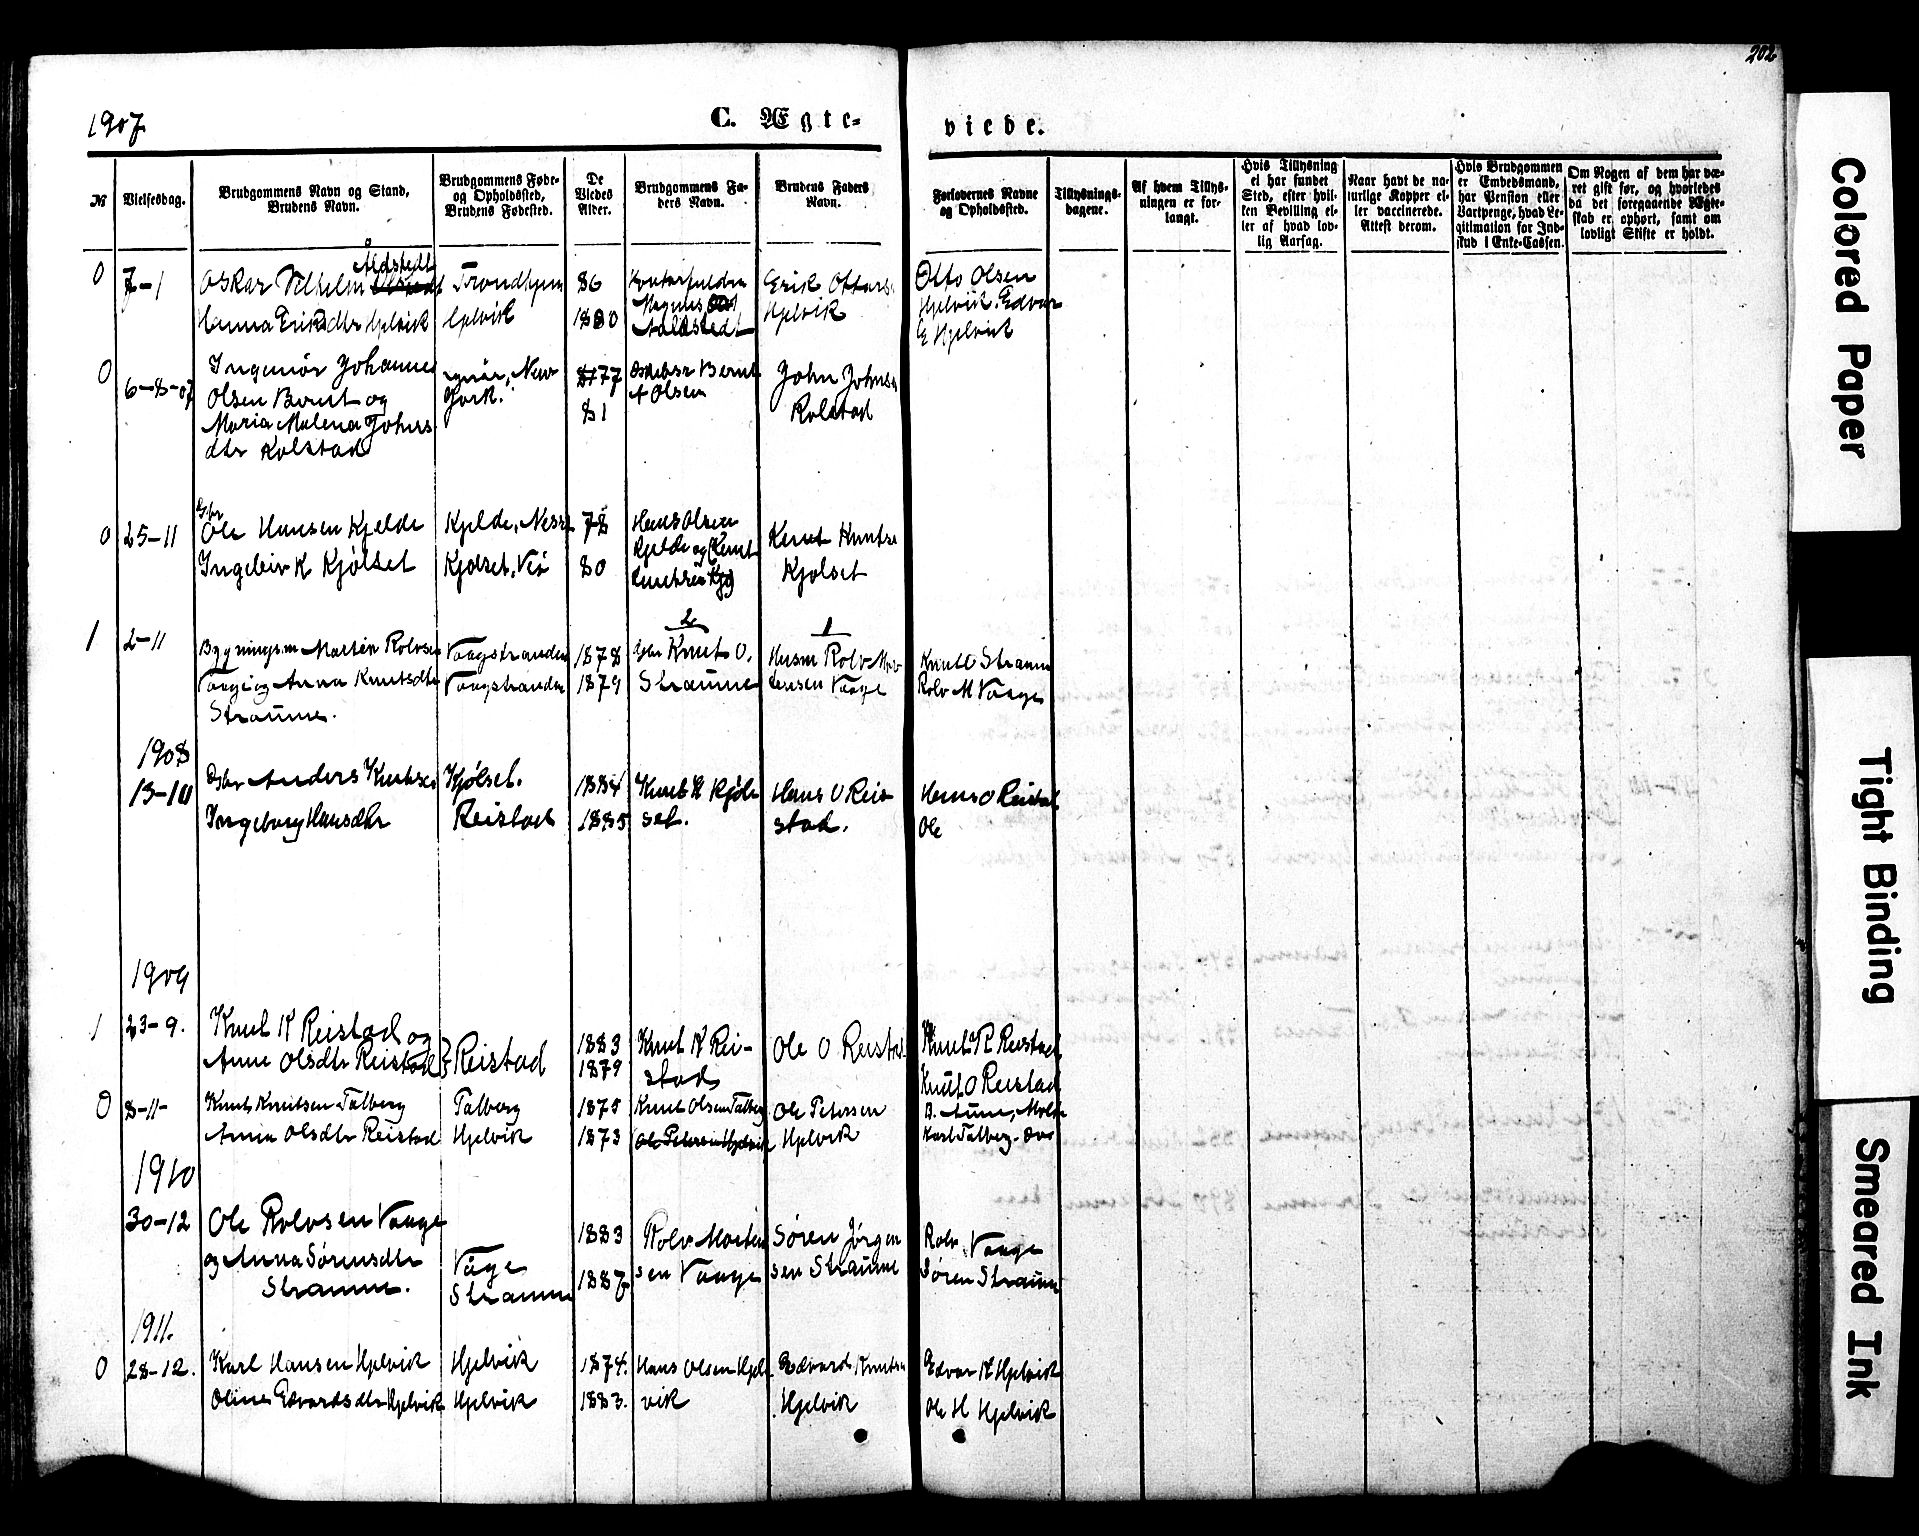 202
1907
C. Ægte-
viede.
№
Vielsesdag.
Brudgommens Navn og Stand,
Brudens Navn.
Brudgommens Føde-
og Opholdssted,
Brudens Fødested.
De
Viedes
Alder.
Brudgommens Fa-
ders Navn.
Brudens Faders
Navn.
Forlovernes Navne
og Opholdssted.
Tillysnings-
dagene.
Af hvem Tillys-
ningen er for-
langt.
Hvis Tillysning
ei har fundet
Sted, efter hvil-
ken Bevilling el-
ler af hvad lov-
lig Aarsag.
Naar havt de na-
turlige Kopper el-
ler vaccinerede.
Attest derom.
Hvis Brudgommen
er Embedsmand,
har Pension eller
Vartpenge, hvad Le-
gitimation for Ind-
skud i Enke-Cassen.
Om Nogen af dem har væ-
ret gift før, og hvorledes
da det foregaaende Ægte-
skab er ophørt, samt om
lovligt Skifte er holdt.
0 7-1 Oskar Vilhelm Aldstedt Trondhjem 86 Magnus Erik Hjelvik Otto Olsen
Eriksdtr Hjelvik Hjelvik 1880 Hjelvik Edvar
Hjelvik
0 6-8-07 Ingeniør Johannes New 77 Bernt John Johns
Olsen Bernt og York. 81 Olsen Kolstad
Maria Malena Johns
dtr Kolstad
0 25-11 Ole Hansen Kjelde Kjelde, 78 Hans Olsen Knut Knuts
Kjølset Kjølset, 80 Kjelde og Knut Kjølset
1 2-11 Bygningsm Morten Rolvsen Vaagstranden 1878 Gbr Knut O. Husm Rolv Knut O Straume
Vaage og Anna Knutsdtr Vaagstranden 1879 Straume Vaage Rolv M Vaage
Straume.
1908
13-10 Gbr Anders Knutsen Kjølset. 1884 Knut K Kjøl Hans O Rei Hans O Reistad
Ingeborg Hansdtr Reistad 1885 set. stad. Ole
1909
1 23-9. Knut K Reistad og Reistad 1883 Knut K Rei- Ole O Reistad Knut K Reistad
Anne Olsdtr Reistad 1879 stad Knut O Reistad
0 8-11- Knut Knutsen Talberg Talberg 1875 Knut Olsen Talberg Ole Petersen
Anna Olsdtr Reistad Hjelvik 1873 Ole Petersen Hjelvik Hjelvik Karl Talberg
1910
30-12 Ole Rolvsen Vaage 1883 Rolv Morten Søren Jørgen Rolv Vaage
og Anna Sørensdtr Vage 1887 sen Vaage sen Straume Søren Straume
Straume. Straume
1911.
0 28-12. Karl Hansen Hjelvik Hjelvik 1874. Hans Olsen Hjel Edvard Knutsen Edvar K Hjelvik
Oline Edvardsdtr Hjelvik Hjelvik 1883. vik Hjelvik Ole H Hjelvik
Colored Paper
Tight Binding
Smeared Ink